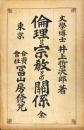 文學博士 井上哲次郎著
倫理と宗教との關係 全
東京
合資會社 冨山房發兌